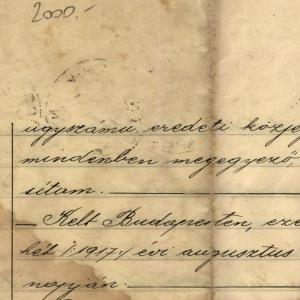 2000.-
ügyszámu eredeti közje
mindenben megegyező,
sitam.
- Kelt Budapesten, eze
hét /:1917:/ évi augusztus
napján.